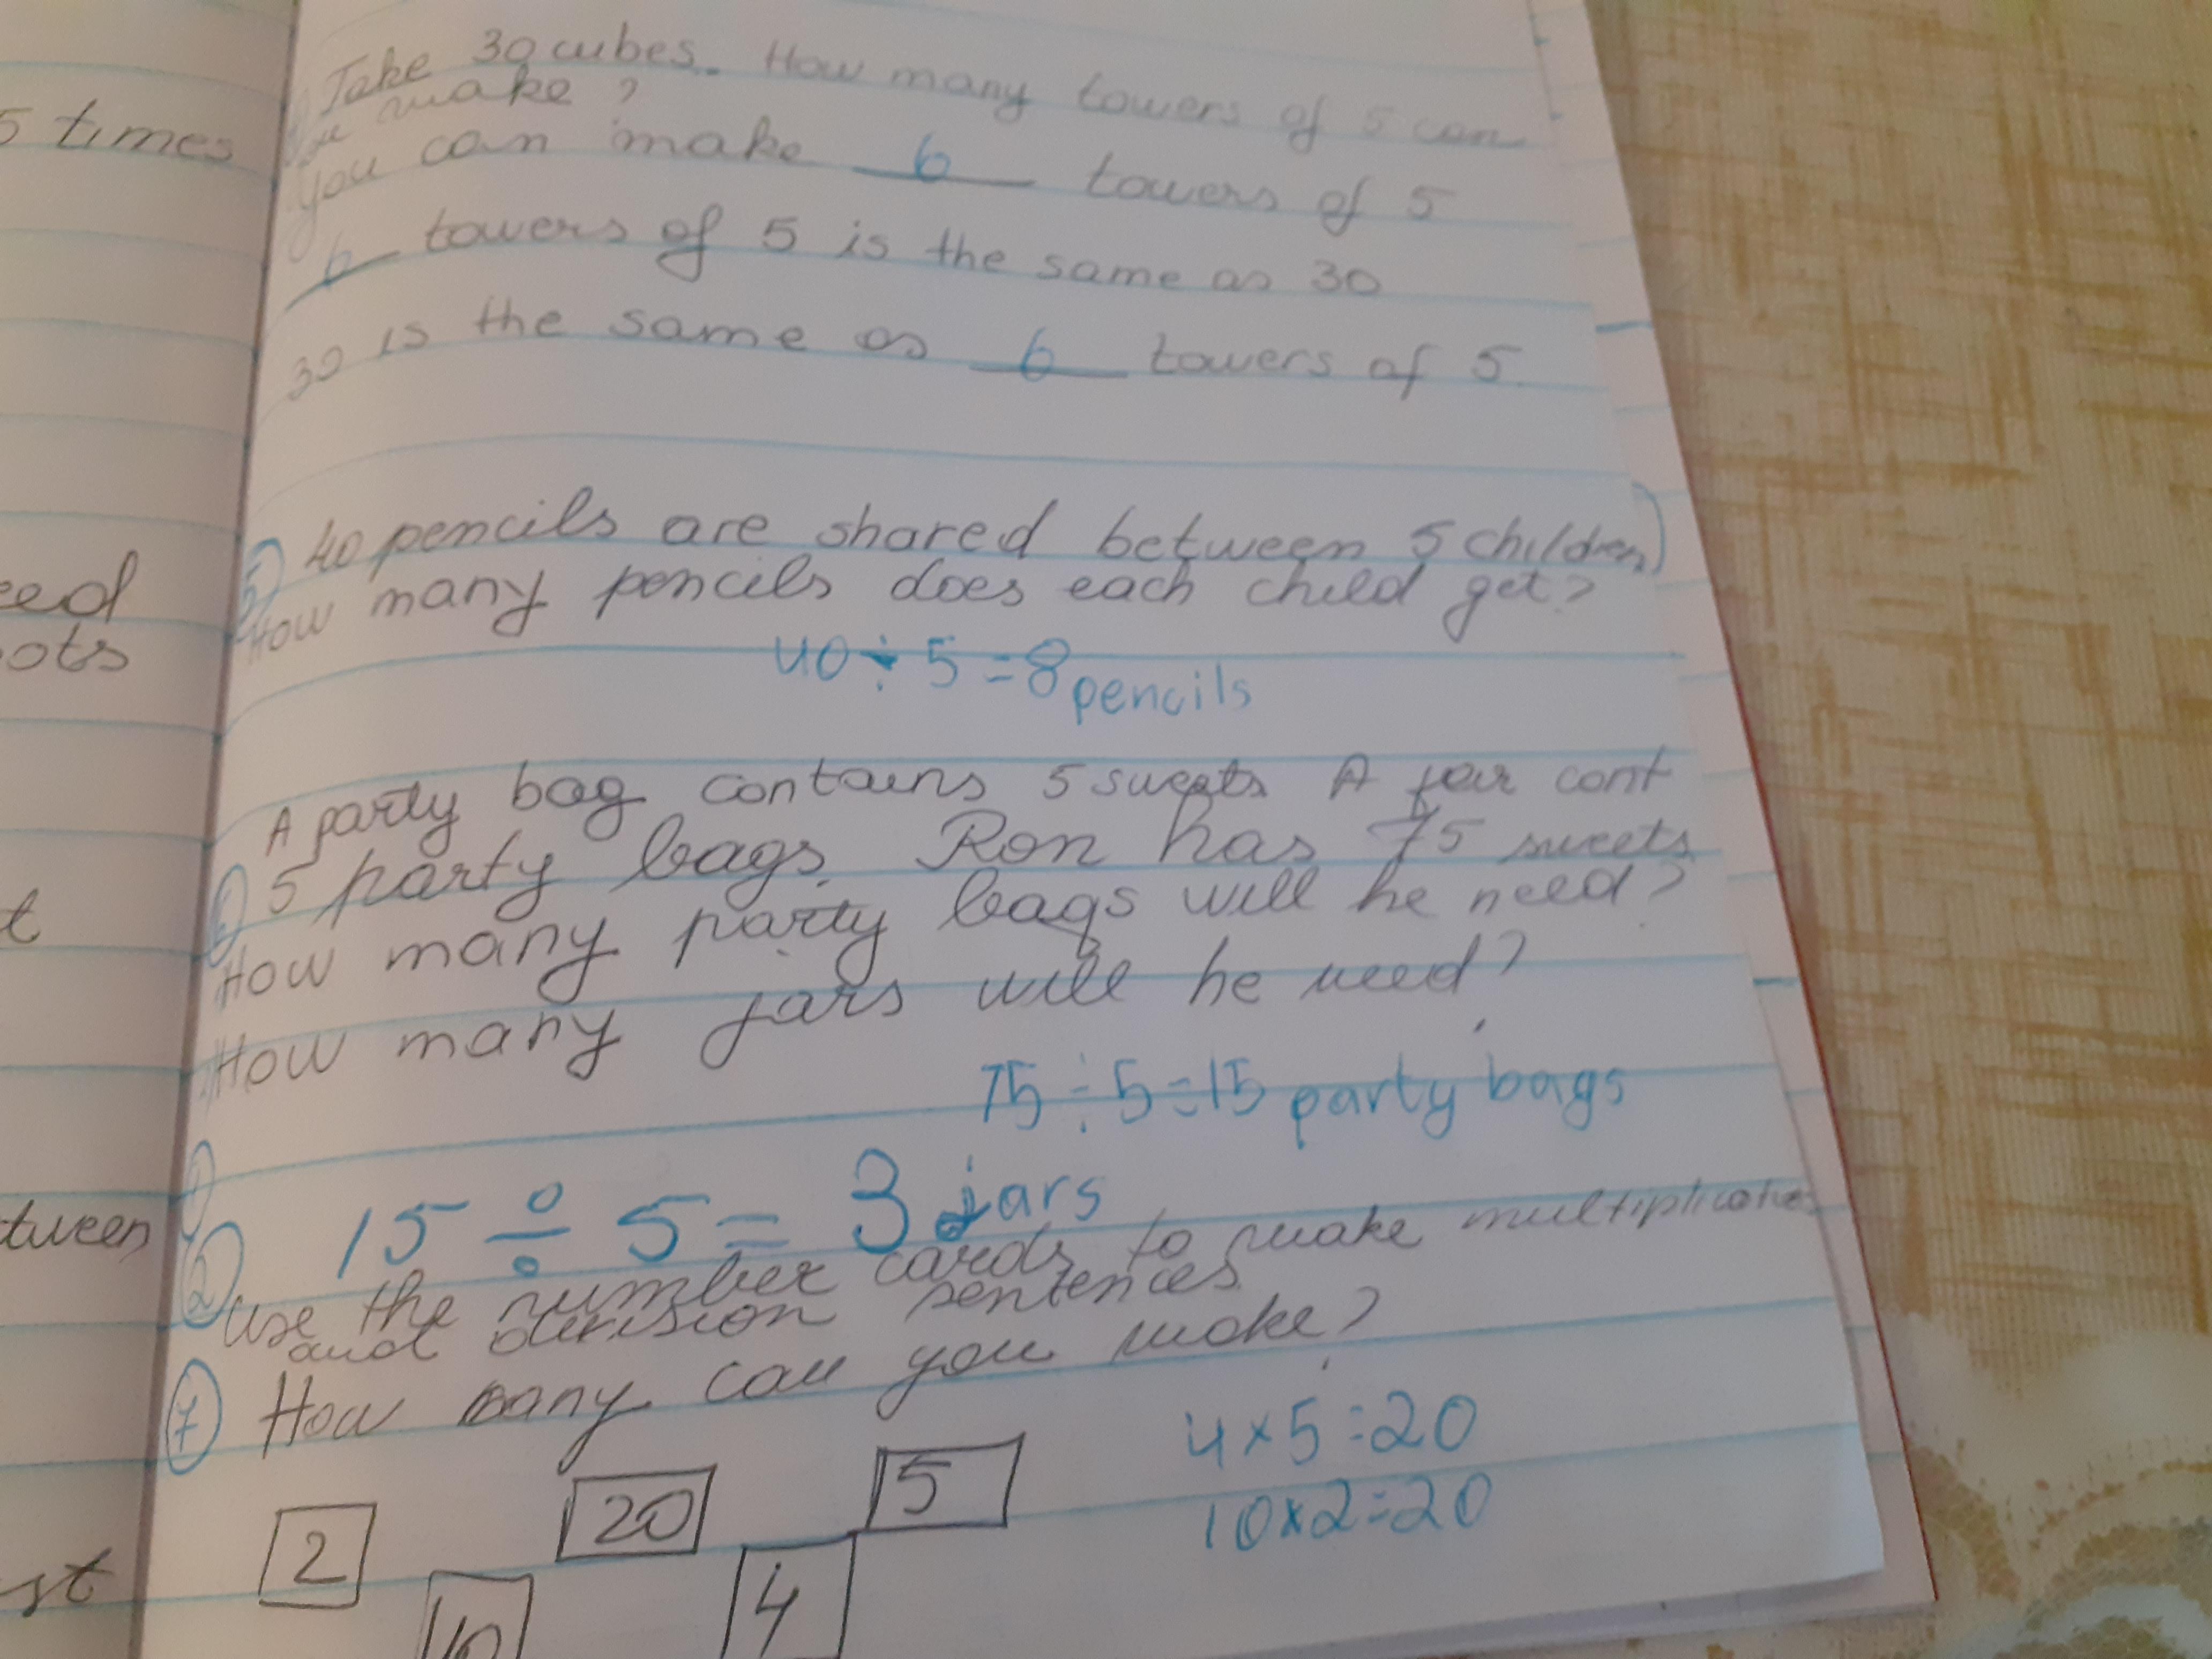 5 times
eed
ots
t
tween
st
Take 30 cubes. How many towers of 5 can
you make?
You can make 6 towers of 5
6 towers of 5 is the same as 30
30 is the same as 6 towers of 5.
5) 40 pencils are shared between 5 children)
How many pencils does each child get?
40 ÷ 5 = 8 pencils
A party bag contains 5 sweets A jar cont
5 party bags. Ron has 75 sweets
How many party bags will he need?
How many jars will he need?
75 ÷ 5 = 15 party bags
1
2) 15 ÷ 5 = 3 jars
Use the number cards to make multiplication
and division sentences
7 How many can you make?
4 x 5 = 20
10 x 2 = 20
2 20 5
10 4